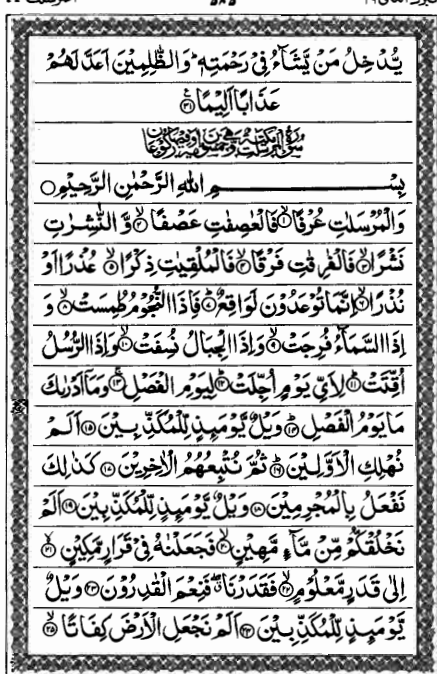 يُّدْخِلُ مَنْ يَّشَآءُ فِىْ رَحْمَتِهٖ ؕ وَالظّٰلِمِيْنَ اَعَدَّ لَهُمْ
عَذَابًا اَلِيْمًا ﴿۳۱﴾
بِسْمِ اللهِ الرَّحْمٰنِ الرَّحِيْمِ ○
وَالْمُرْسَلٰتِ عُرْفًا ﴿۱﴾ فَالْعٰصِفٰتِ عَصْفًا ﴿۲﴾ وَّالنّٰشِرٰتِ
نَشْرًا ﴿۳﴾ فَالْفٰرِقٰتِ فَرْقًا ﴿۴﴾ فَالْمُلْقِيٰتِ ذِكْرًا ﴿۵﴾ عُذْرًا اَوْ
نُذْرًا ﴿۶﴾ اِنَّمَا تُوْعَدُوْنَ لَوَاقِعٌ ﴿۷﴾ فَاِذَا النُّجُوْمُ طُمِسَتْ ﴿۸﴾ وَ
اِذَا السَّمَآءُ فُرِجَتْ ﴿۹﴾ وَاِذَا الْجِبَالُ نُسِفَتْ ﴿۱۰﴾ وَاِذَا الرُّسُلُ
اُقِّتَتْ ﴿۱۱﴾ لِاَىِّ يَوْمٍ اُجِّلَتْ ﴿۱۲﴾ لِيَوْمِ الْفَصْلِ ﴿۱۳﴾ وَمَآ اَدْرٰىكَ
مَا يَوْمُ الْفَصْلِ ﴿۱۴﴾ وَيْلٌ يَّوْمَئِذٍ لِّلْمُكَذِّبِيْنَ ﴿۱۵﴾ اَلَمْ
نُهْلِكِ الْاَوَّلِيْنَ ﴿۱۶﴾ ثُمَّ نُتْبِعُهُمُ الْاٰخِرِيْنَ ﴿۱۷﴾ كَذٰلِكَ
نَفْعَلُ بِالْمُجْرِمِيْنَ ﴿۱۸﴾ وَيْلٌ يَّوْمَئِذٍ لِّلْمُكَذِّبِيْنَ ﴿۱۹﴾ اَلَمْ
نَخْلُقْكُّمْ مِّنْ مَّآءٍ مَّهِيْنٍ ﴿۲۰﴾ فَجَعَلْنٰهُ فِىْ قَرَارٍ مَّكِيْنٍ ﴿۲۱﴾
اِلٰى قَدَرٍ مَّعْلُوْمٍ ﴿۲۲﴾ فَقَدَرْنَا ۖ فَنِعْمَ الْقٰدِرُوْنَ ﴿۲۳﴾ وَيْلٌ
يَّوْمَئِذٍ لِّلْمُكَذِّبِيْنَ ﴿۲۴﴾ اَلَمْ نَجْعَلِ الْاَرْضَ كِفَاتًا ﴿۲۵﴾